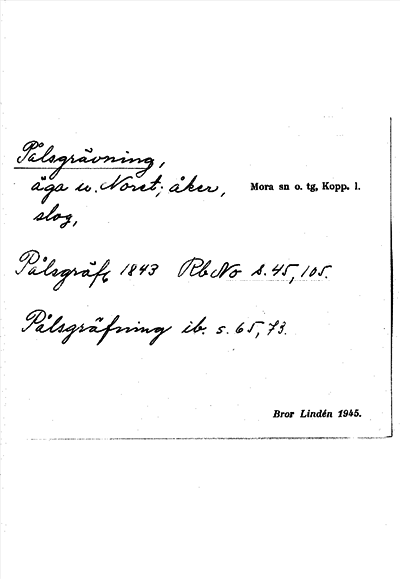 Pålsgrävning,
äga u. Noret; åker, Mora sn o. tg, Kopp. l.
slog,
Pålsgräfg 1843 RbNo s. 45, 105.
Pålsgräfning ib. s. 65, 73.
Bror Lindén 1945.